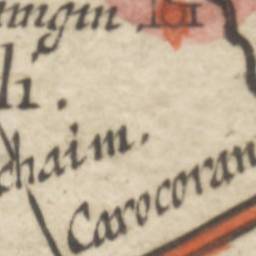 imgin
li.
chaim.
Carocoran